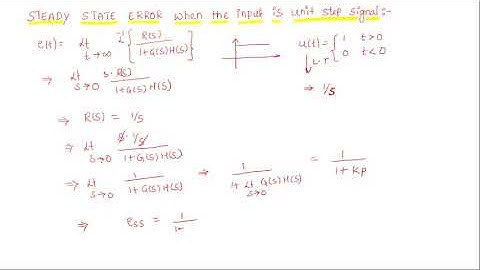 STEADY STATE ERROR when the Input is unit step signal:-
e(t)= Lt t→∞ L⁻¹ { R(s) / 1+G(s)H(s) }
u(t)= { 1 t>0
0 t<0
⇒ Lt s→0 s·R(s) / 1+G(s)H(s)
↓ L.T
⇒ 1/s
⇒ R(s) = 1/s
⇒ Lt s→0 s·1/s / 1+G(s)H(s)
⇒ Lt s→0 1 / 1+G(s)H(s) ⇒ 1 / 1+ Lt s→0 G(s)H(s) = 1 / 1+Kp
⇒ ess = 1 / 1+